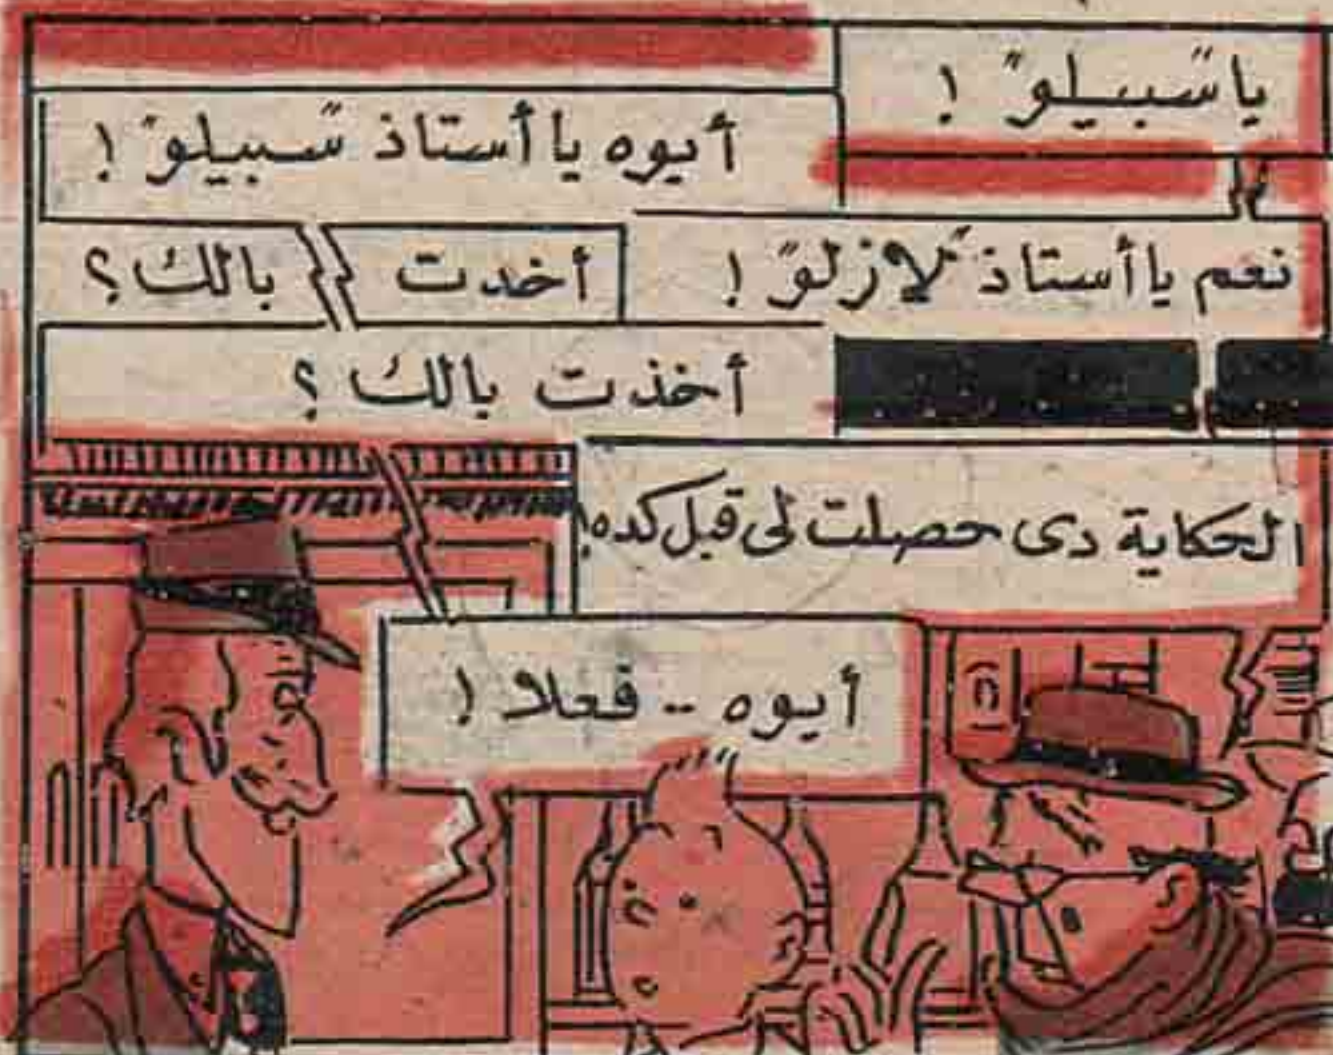 يا "سبيلو" !
أيوه يا أستاذ "سبيلو" !
نعم يا أستاذ "لازلو" !
أخدت بالك؟
أخذت بالك ؟
الحكاية دى حصلت لى قبل كده!
أيوه -- فعلا !